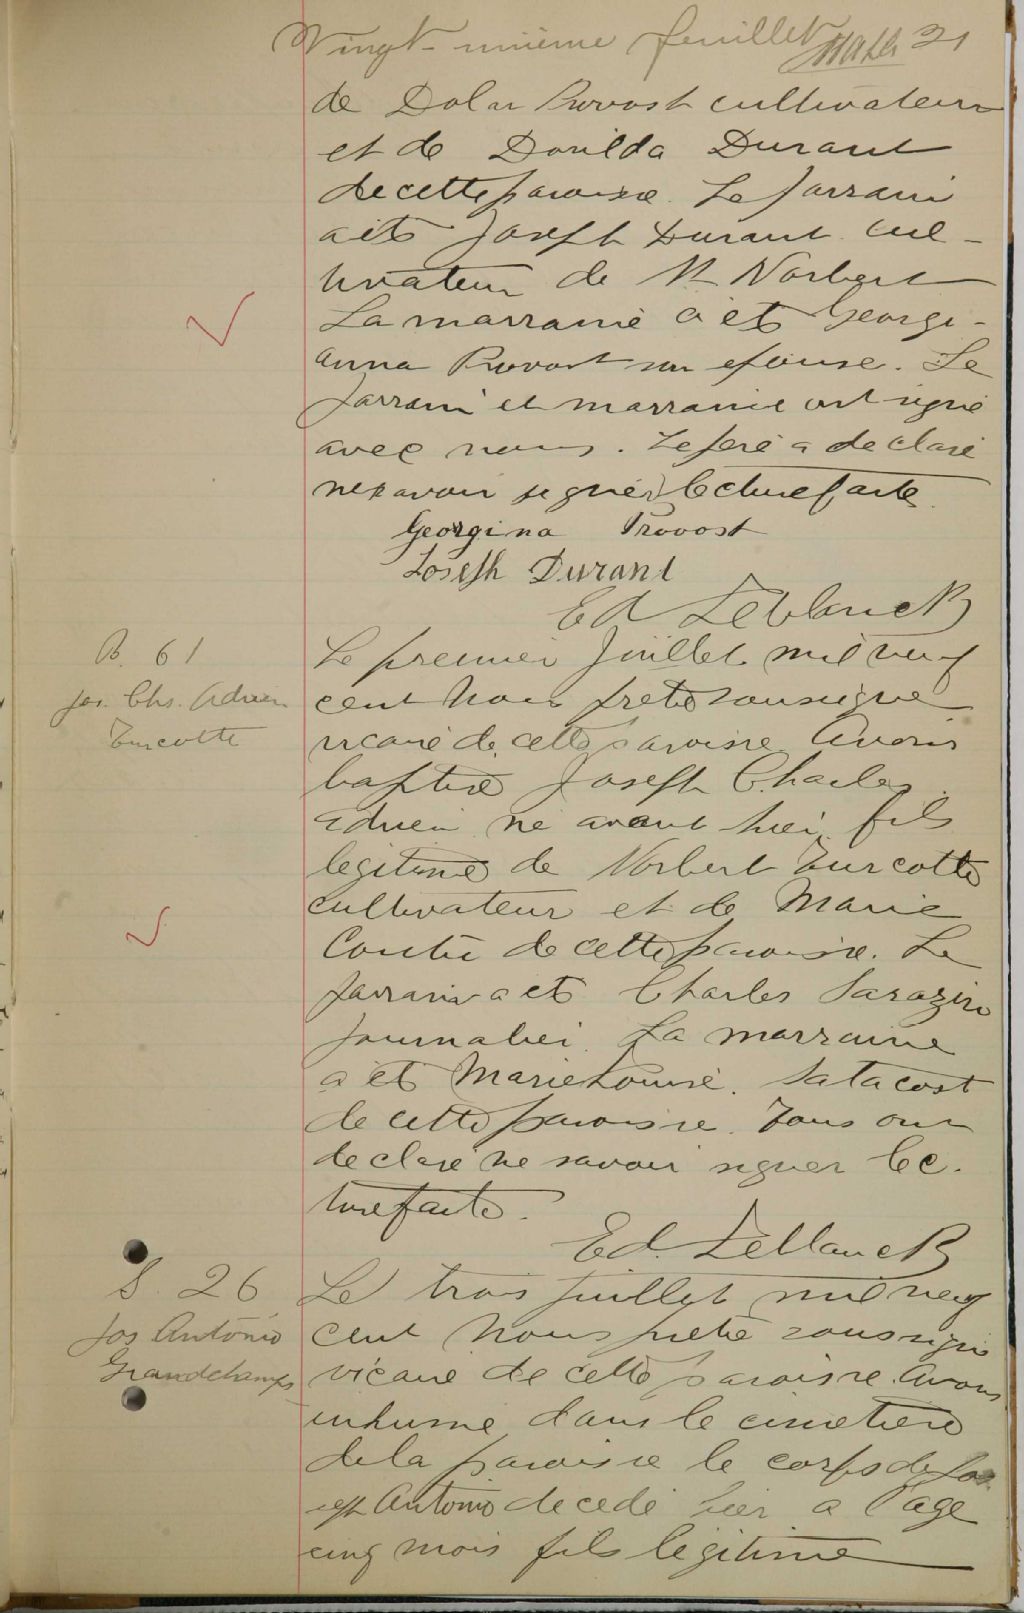 Vingt-unième feuillet 21
de Dolar Provost cultivateur
et de Dorilda Durant
de cette paroisse. Le parrain
a été Joseph Durant cul-
tivateur de St Norbert
La marraine a été Georgi-
anna Provost son épouse. Le
parrain et marraine ont signé
avec nous. Le père a déclaré
ne savoir signer, lecture faite.
Georgina Provost
Joseph Durant
Ed Leblanc
B. 61
Jos. Chs. Adrien
Turcotte
Le premier Juillet mil neuf
cent Nous prêtre soussigné
vicaire de cette paroisse Avons
baptisé Joseph Charles
Adrien né avant hier, fils
légitime de Norbert Turcotte
cultivateur et de Marie
Coutu de cette paroisse. Le
parrain a été Charles Sarazin
journalier. La marraine
a été Marie Louise
de cette paroisse. Tous ont
déclaré ne savoir signer Lec-
ture faite.
Ed. Leblanc
S. 26
Jos Antonio
Grandchamps
Le trois Juillet mil neuf
cent Nous prêtre soussigné
vicaire de cette paroisse. Avons
inhumé dans le cimetière
de la paroisse le corps de Jos
eph Antonio décédé hier a l'age
cinq mois fils légitime